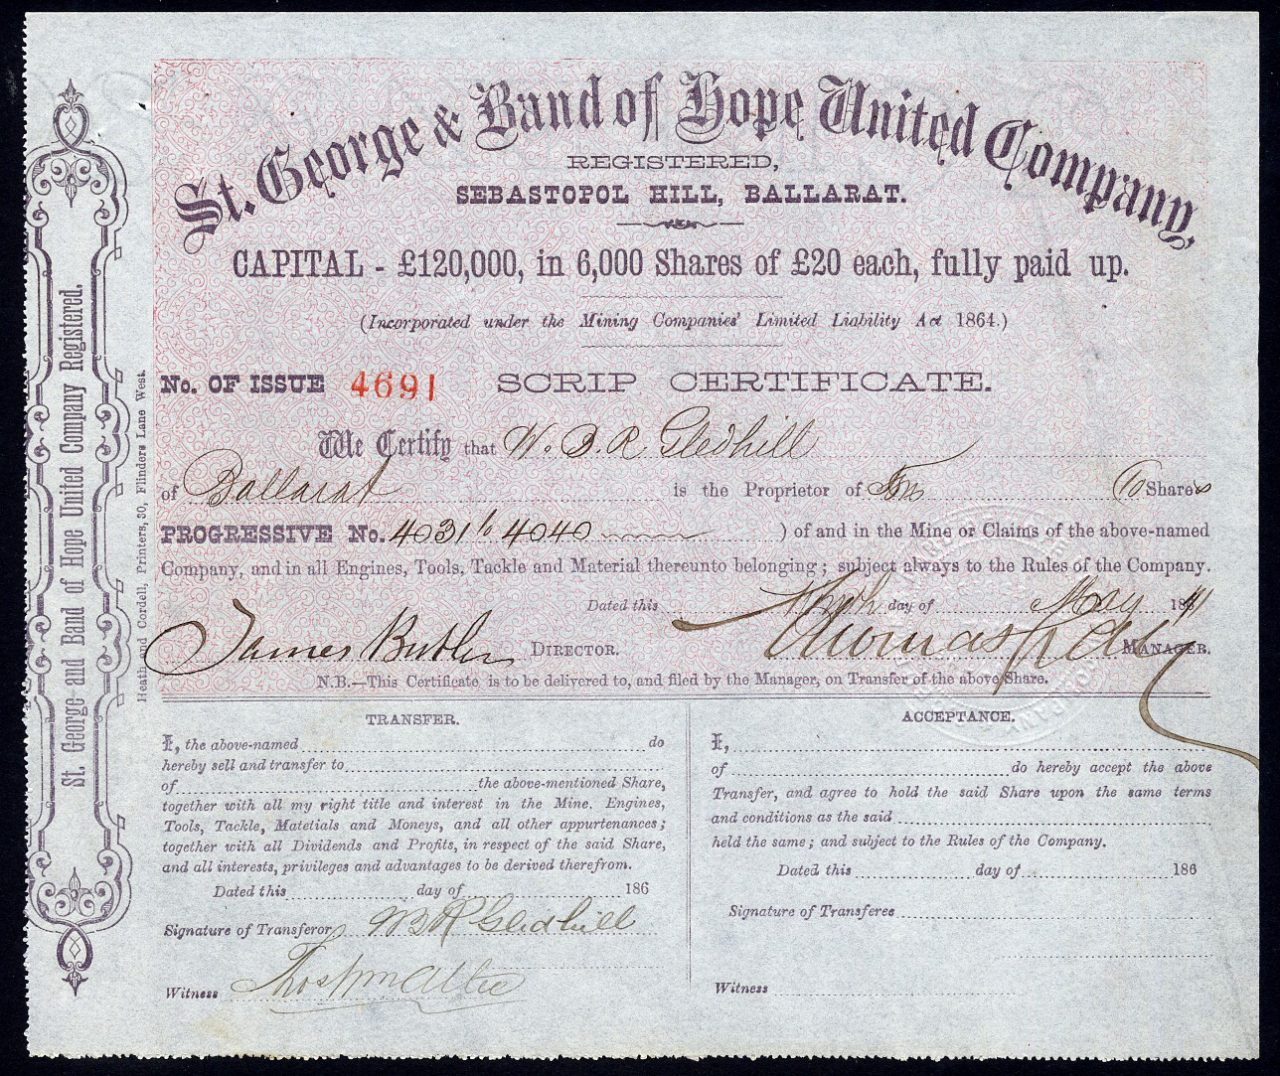 St. George & Band of Hope United Company,
REGISTERED,
SEBASTOPOL HILL, BALLARAT.
CAPITAL - £120,000, in 6,000 Shares of £20 each, fully paid up.
(Incorporated under the Mining Companies' Limited Liability Act 1864.)
No. OF ISSUE 4691 SCRIP CERTIFICATE.
We Certify that W. B. R. Gledhill
of Ballarat is the Proprietor of Ten (10 Shares
PROGRESSIVE No. 4031 to 4040 ) of and in the Mine or Claims of the above-named
Company, and in all Engines, Tools, Tackle and Material thereunto belonging; subject always to the Rules of the Company.
Dated this day of May 186
James Butler DIRECTOR. Thomas MANAGER.
N.B.—This Certificate is to be delivered to, and filed by the Manager, on Transfer of the above Share.
TRANSFER.
I, the above-named do
hereby sell and transfer to
of the above-mentioned Share,
together with all my right title and interest in the Mine, Engines,
Tools, Tackle, Matetials and Moneys, and all other appurtenances;
together with all Dividends and Profits, in respect of the said Share,
and all interests, privileges and advantages to be derived therefrom.
Dated this day of 186
Signature of Transferor W B R Gledhill
Witness
ACCEPTANCE.
I,
of do hereby accept the above
Transfer, and agree to hold the said Share upon the same terms
and conditions as the said
held the same; and subject to the Rules of the Company.
Dated this day of 186
Signature of Transferee
Witness
St. George and Band of Hope United Company Registered.
Heath and Cordell, Printers, 30, Flinders Lane West.